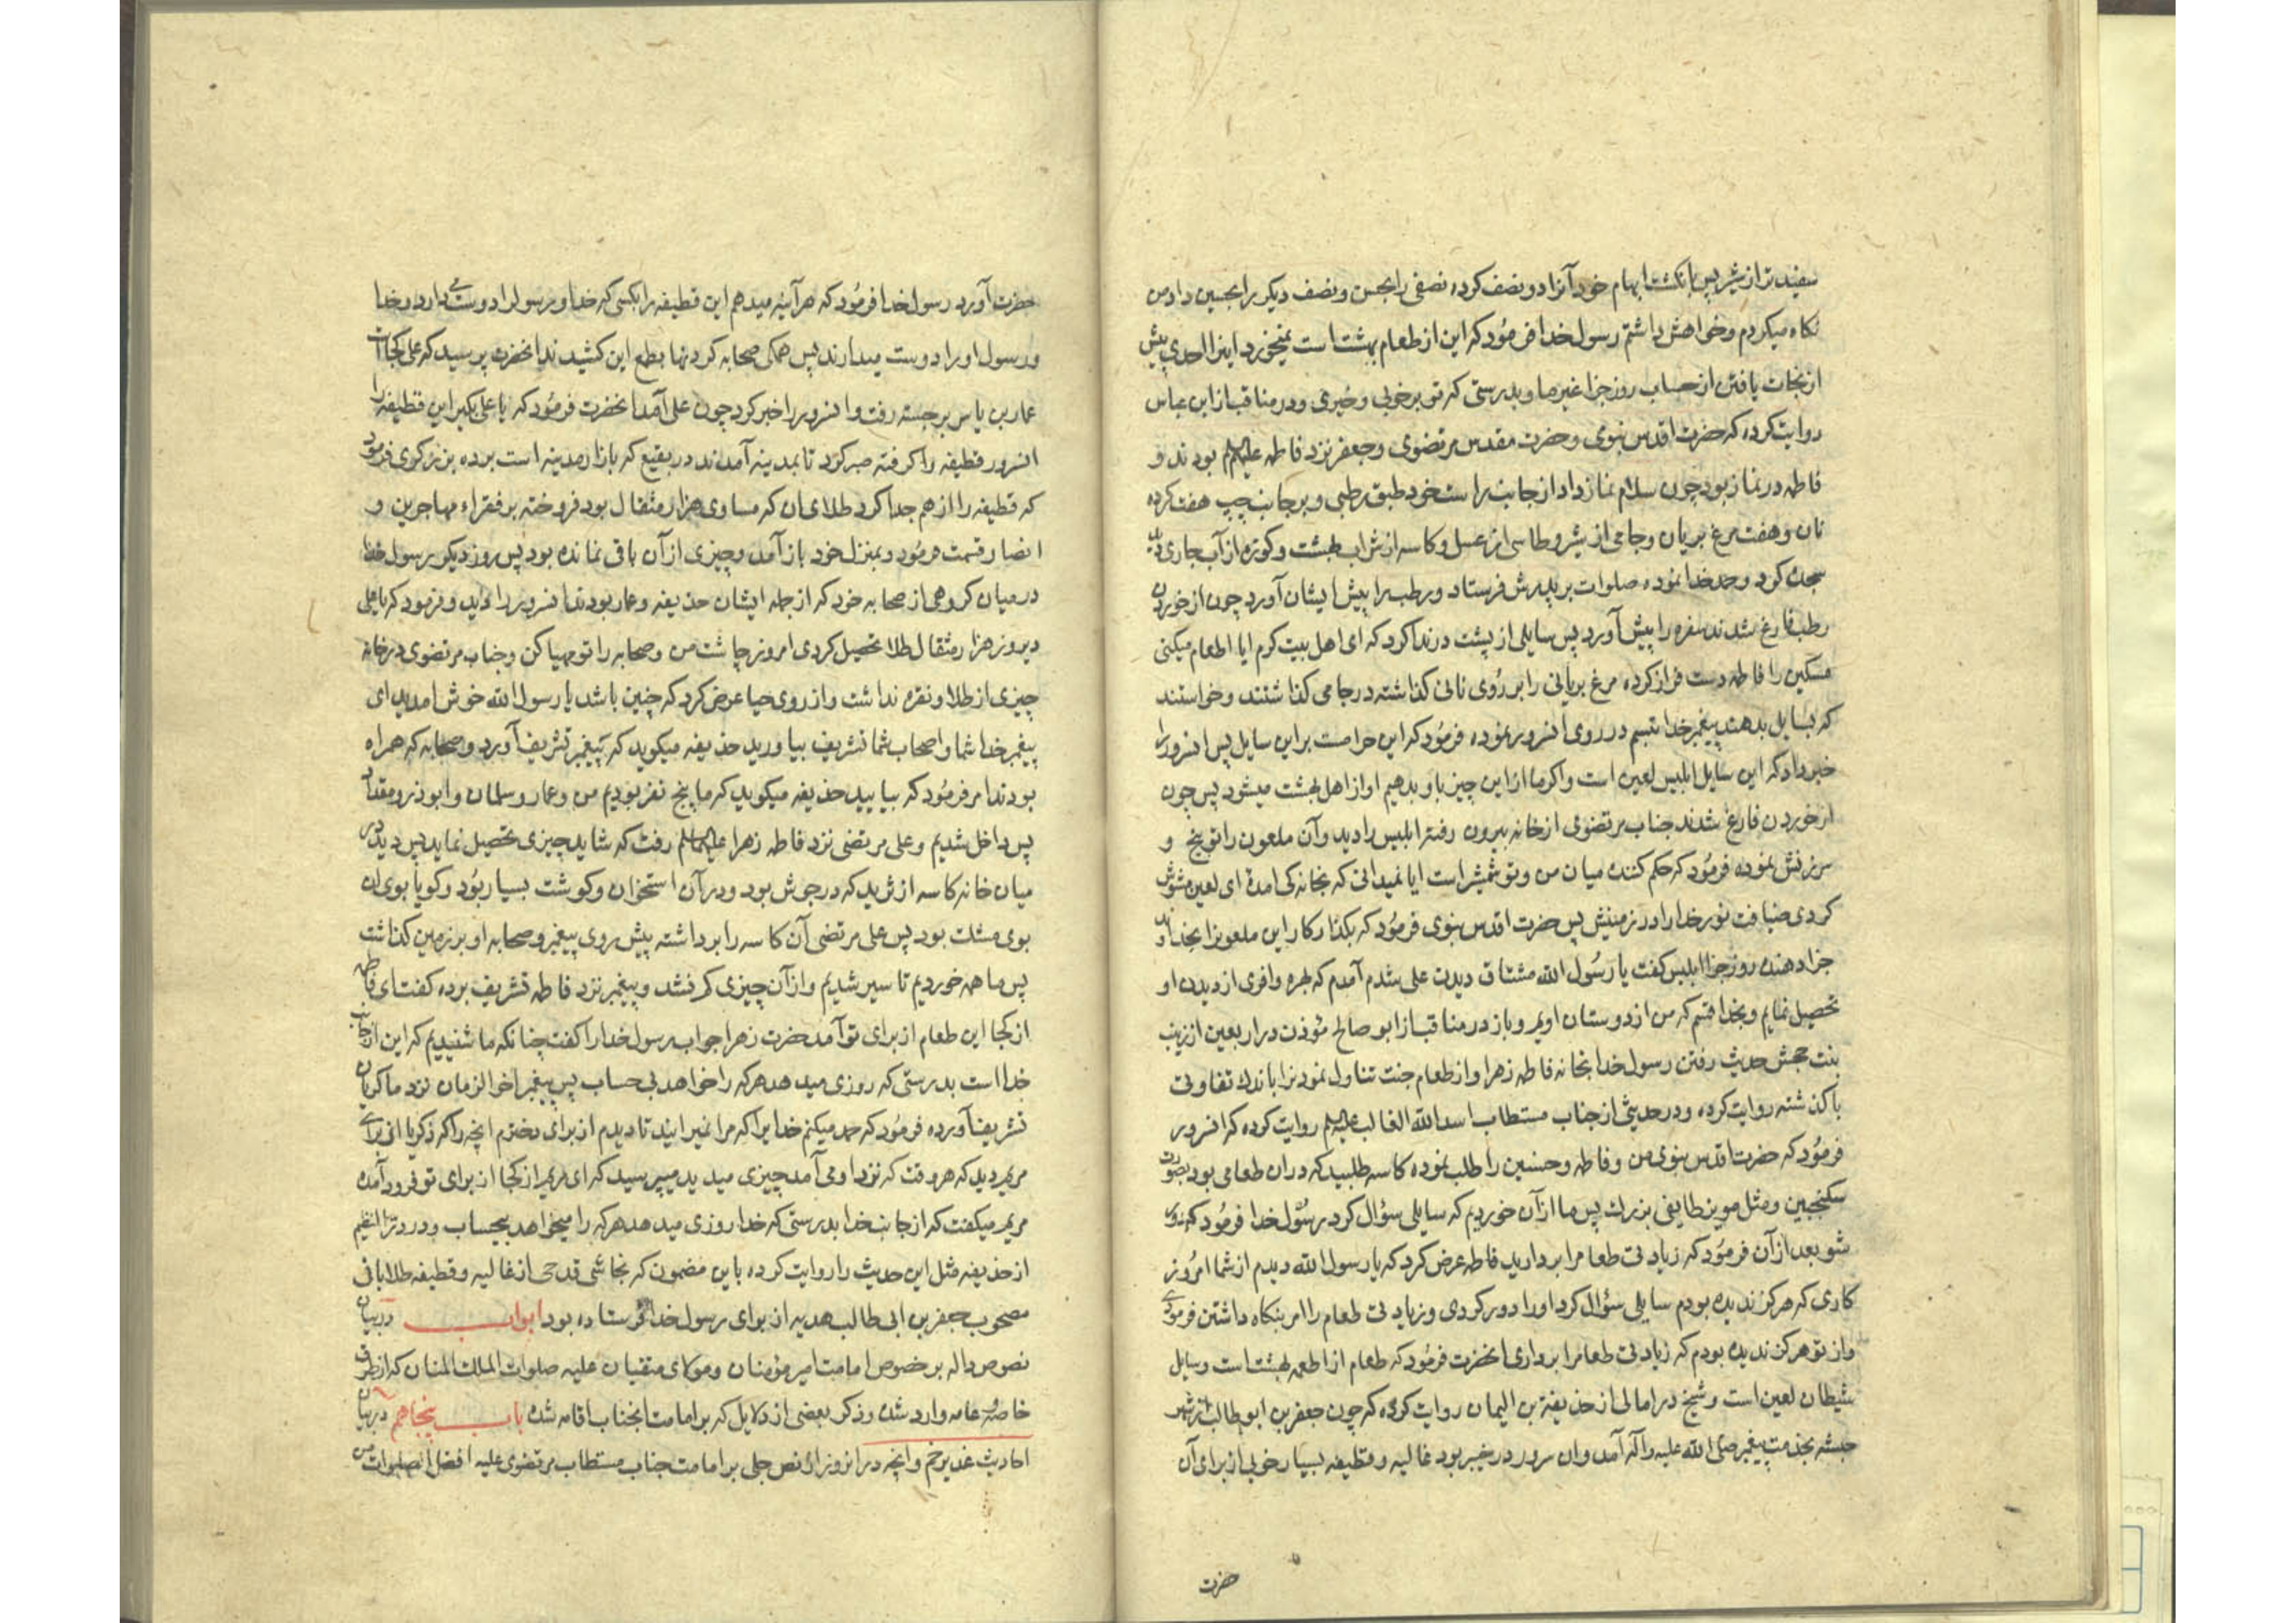 سفیدتر از شیر پس بانکشت ابهام خود آنرا دو نصف کرده نصفی را بحسن و نصف دیکر را بحسین داد و من
نکاه میکردم و خواهش داشتم رسول خدا فرمود که این از طعام بهشت است نمیخورد اینرا احدی پیش
از نجات یافتن از حساب روز جزا غیر ما و بدرستی که تو بر خوبی و خیری و در مناقب از ابن عباس
روایت کرده که حضرت اقدس نبوی و حضرت مقدس مرتضوی و جعفر نزد فاطمه علیهم بودند و
فاطمه در نماز بود چون سلام نماز داد از جانب راست خود طبق رطبی و بر جانب چپ هفت کرده
نان و هفت مرغ بریان و جامی از شیر و طاسی از عسل و کاسه از شراب بهشت و کوزه از آب جاری دید
سجده کرد و حمد خدا نموده صلوات بر پدرش فرستاد و رطب را پیش ایشان آورد چون از خوردن
رطب فارغ شدند سفره را پیش آورد پس سایلی از پشت در ندا کرد که ای اهل بیت کرم ایا اطعام میکنی
مسکین را فاطمه دست فراز کرده مرغ بریانی را بر روی نانی کذاشته در جامی کذاشتند و خواستند
که بسایل بدهند پیغمبر خدا تبسم در روی انسرور نموده فرمود که این حرامست براین سایل پس انسرور را
خبر داد که این سایل ابلیس لعین است و اکر ما از این چیز باو بدهیم او از اهل بهشت میشود پس چون
از خوردن فارغ شدند جناب مرتضوی از خانه بیرون رفته ابلیس را دید و آن ملعون را توبیخ و
سرزنش نموده فرمود که حکم کننده میان من و تو شمشیر است ایا نمیدانی که بخانه کی امدۀ ای لعین مشوش
کردی ضیافت نور خدا را در زمینش پس حضرت اقدس نبوی فرمود که بکذار کار این ملعونرا بخداوند
جزا دهنده روز جزا ابلیس کفت یا رسول الله مشتاق دیدن علی شدم آمدم که بهره وافری از دیدن او
تحصیل نمایم و بخدا قسم که من از دوستان اویم و باز در مناقب از ابو صالح مؤذن در اربعین از زینب
بنت جحش حدیث رفتن رسول خدا بخانه فاطمه زهرا و از طعام جنت تناول نمودنرا باندک تفاوتی
با کذشته روایت کرده و در حدیثی از جناب مستطاب اسد الله الغالب علیه روایت کرده که انسرور
فرمود که حضرت اقدس نبوی من و فاطمه و حسنین را طلب نموده کاسه طلبید که دران طعامی بود بصورت
سکنجبین و مثل مویز طایفی بزرک پس ما از آن خوردیم که سایلی سؤال کرد رسول خدا فرمود که دور
شو بعد از آن فرمود که زیادتی طعام را بردارید فاطمه عرض کرد که یا رسول الله دیدم از شما امروز
کاری که هرکز ندیده بودم سایلی سؤال کرد او را دور کردی و زیادتی طعام را امر بنکاه داشتن فرمودی
و از تو هرکز ندیده بودم که زیادتی طعام را برداری انحضرت فرمود که طعام از اطعمه بهشت است و سایل
شیطان لعین است و شیخ در امالی از حذیفة بن الیمان روایت کرده که چون جعفر بن ابو طالب از شهر
حبشه بخدمت پیغمبر صلی الله علیه و آله آمد و ان سرور در خیبر بود غالیه و قطیفه بسیار خوبی از برای آن
حضرت
حضرت آورد رسول خدا فرمود که هر آینه میدهم این قطیفه را بکسی که خدا و رسول را دوست دارد و خدا
و رسول او را دوست میدارند پس همکی صحابه کردنها بطمع این کشیدند انحضرت پرسید که علی کجا است
عمار بن یاسر برجسته رفت و انسرور را خبر کرد چون علی آمد انحضرت فرمود که یا علی بکیر این قطیفه را
انسرور قطیفه را کرفته صبر کرد تا بمدینه آمدند در بقیع که بازار مدینه است برده بزرکری فرمود
که قطیفه را از هم جدا کرد طلای ان که مساوی هزار مثقال بود فروخته بر فقراء مهاجرین و
انصار قسمت فرمود و بمنزل خود باز آمد و چیزی از آن باقی نمانده بود پس روز دیکر رسول خدا
در میان کروهی از صحابه خود که از جمله ایشان حذیفه و عمار بودند انسرور را دید و فرمود که یا علی
دیروز هزار مثقال طلا تحصیل کردی امروز چاشت من و صحابه را تو مهیا کن و جناب مرتضوی در خانه
چیزی از طلا و نقره نداشت و از روی حیا عرض کرد که چنین باشد یا رسول الله خوش امدید ای
پیغمبر خدا شما و اصحاب شما تشریف بیاورید حذیفه میکوید که پیغمبر تشریف آورد و صحابه که همراه
بودند امر فرمود که بیایید حذیفه میکوید که ما پنج نفر بودیم من و عمار و سلمان و ابوذر و مقداد
پس داخل شدیم و علی مرتضی نزد فاطمه زهرا علیهما رفت که شاید چیزی تحصیل نماید پس دید در
میان خانه کاسه از ثرید که در جوش بود و در آن استخوان و کوشت بسیار بود و کویا بوی ان
بوی مشک بود پس علی مرتضی آن کاسه را برداشته پیش روی پیغمبر و صحابه او بر زمین کذاشت
پس ما همه خوردیم تا سیر شدیم و از آن چیزی کم نشد و پیغمبر نزد فاطمه تشریف برده کفت ای فاطمه
از کجا این طعام از برای تو آمد حضرت زهرا جواب رسول خدا را کفت چنانکه ما شنیدیم که این از جانب
خدا است بدرستی که روزی میدهد هر که را خواهد بی حساب پس پیغمبر اخر الزمان نزد ما کریان
تشریف آورده فرمود که حمد میکنم خدایرا که مرا نمیرانید تا دیدم از برای دخترم انچه را که زکریا از برای
مریم دید که هر وقت که نزد او می آمد چیزی میدید میپرسید که ای مریم از کجا از برای تو فرود آمده
مریم میکفت که از جانب خدا بدرستی که خدا روزی میدهد هر که را میخواهد بیحساب و در در النظیم
از حذیفه مثل این حدیث را روایت کرده باین مضمون که نجاشی قدحی از غالیه و قطیفه طلابافی
مصحوب جعفر بن ابی طالب هدیه از برای رسول خدا فرستاده بود ابواب در بیان
نصوص داله بر خصوص امامت امیر مؤمنان و مولای متقیان علیه صلوات الملک المنان که از طرق
خاصه و عامه وارد شده و ذکر بعضی از دلایل که بر امامت انجناب اقامه شده باب پنجاهم در بیان
احادیث غدیر خم و انچه در انروز از نص جلی بر امامت جناب مستطاب مرتضوی علیه افضل الصلوات من